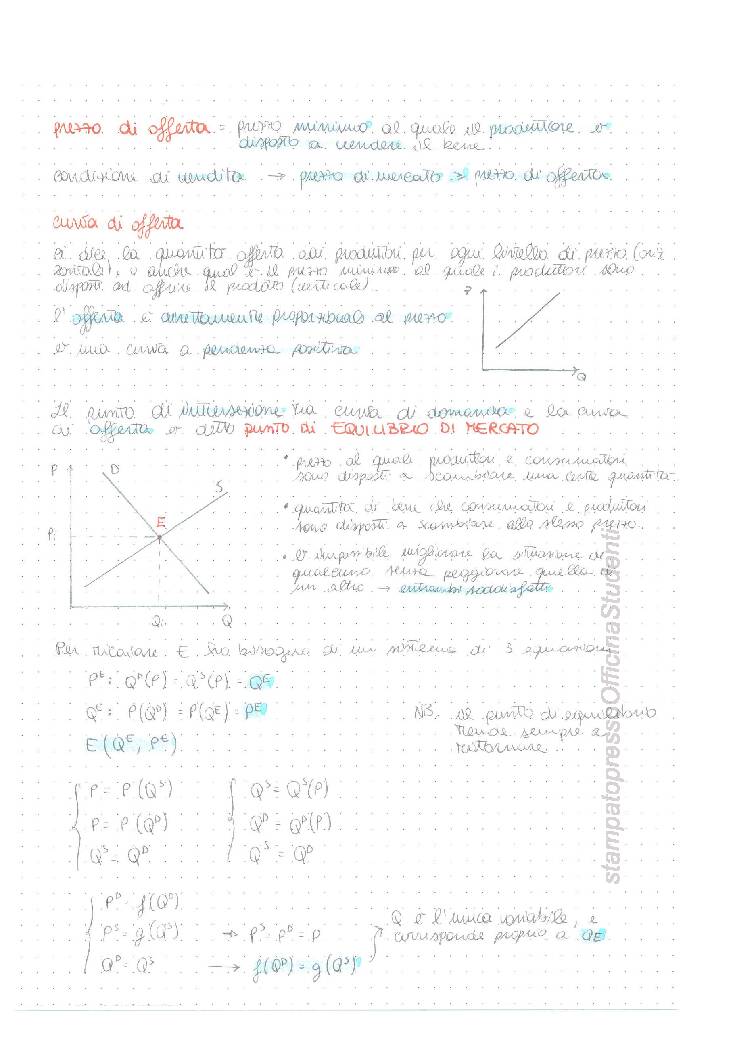 prezzo di offerta = prezzo minimo al quale il produttore è
disposto a vendere il bene.
condizione di vendita → prezzo di mercato > prezzo di offerta
curva di offerta
ci dice la quantità offerta dai produttori per ogni livello di prezzo (oriz
zontale), o anche qual è il prezzo minimo al quale i produttori sono
disposti ad offrire il prodotto (verticale).
P
l'offerta è direttamente proporzionale al prezzo
è una curva a pendenza positiva
Q
Il punto di intersezione tra curva di domanda e la curva
di offerta è detto punto di EQUILIBRIO DI MERCATO
P D S E P₁ Q₁ Q
• prezzo al quale produttori e consumatori
sono disposti a scambiare una certa quantità
• quantità di bene che consumatori e produttori
sono disposti a scambiare allo stesso prezzo.
• è impossibile migliorare la situazione di
qualcuno senza peggiorare quella di
un altro → entrambi soddisfatti
Per ricavare E ho bisogno di un sistema di 3 equazioni
Pᴱ: Qᴰ(P) = Qˢ(P) = Qᴱ
Qᴱ: P(Qᴰ) = P(Qᴱ) = Pᴱ
E(Qᴱ, Pᴱ)
NB. il punto di equilibrio
tende sempre a
ritornare
P = P(Qˢ) Qˢ = Qˢ(P)
P = P(Qᴰ) Qᴰ = Qᴰ(P)
Qˢ = Qᴰ Qˢ = Qᴰ
Pᴰ = f(Qᴰ)
Pˢ = g(Qˢ) → Pˢ = Pᴰ = P
Qᴰ = Qˢ → f(Qᴰ) = g(Qˢ)
Q è l'unica variabile, e
corrisponde proprio a QE
stampatopressoOfficinaStudenti